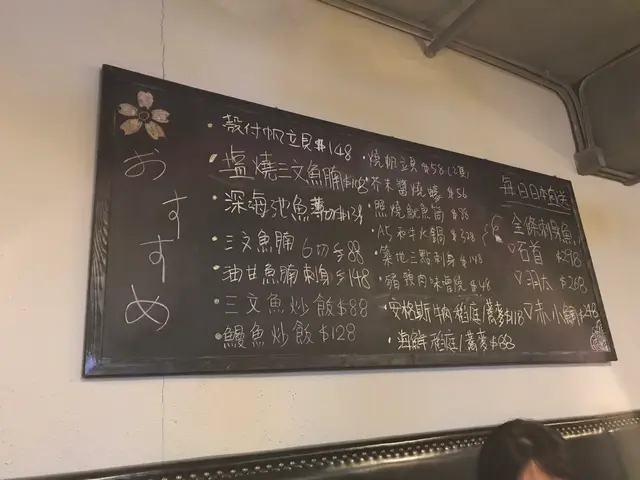 おすすめ
殼付帆立貝$148
塩燒三文魚腩$108
深海池魚薄切$138
三文魚腩 6切$88
油甘魚腩刺身$148
三文魚炒飯$88
鰻魚炒飯$128
燒帆立貝$58(2隻)
芥末醬燒蠔$56
照燒魷魚筒$88
A5和牛火鍋$328
築地三點刺身$148
豬頸肉味噌燒$48
安格斯牛肉稻庭/蕎麥$118
海鮮稻庭/蕎麥$88
每日日本直送
全條刺身魚
石首 $298
$268
赤小鯛$248